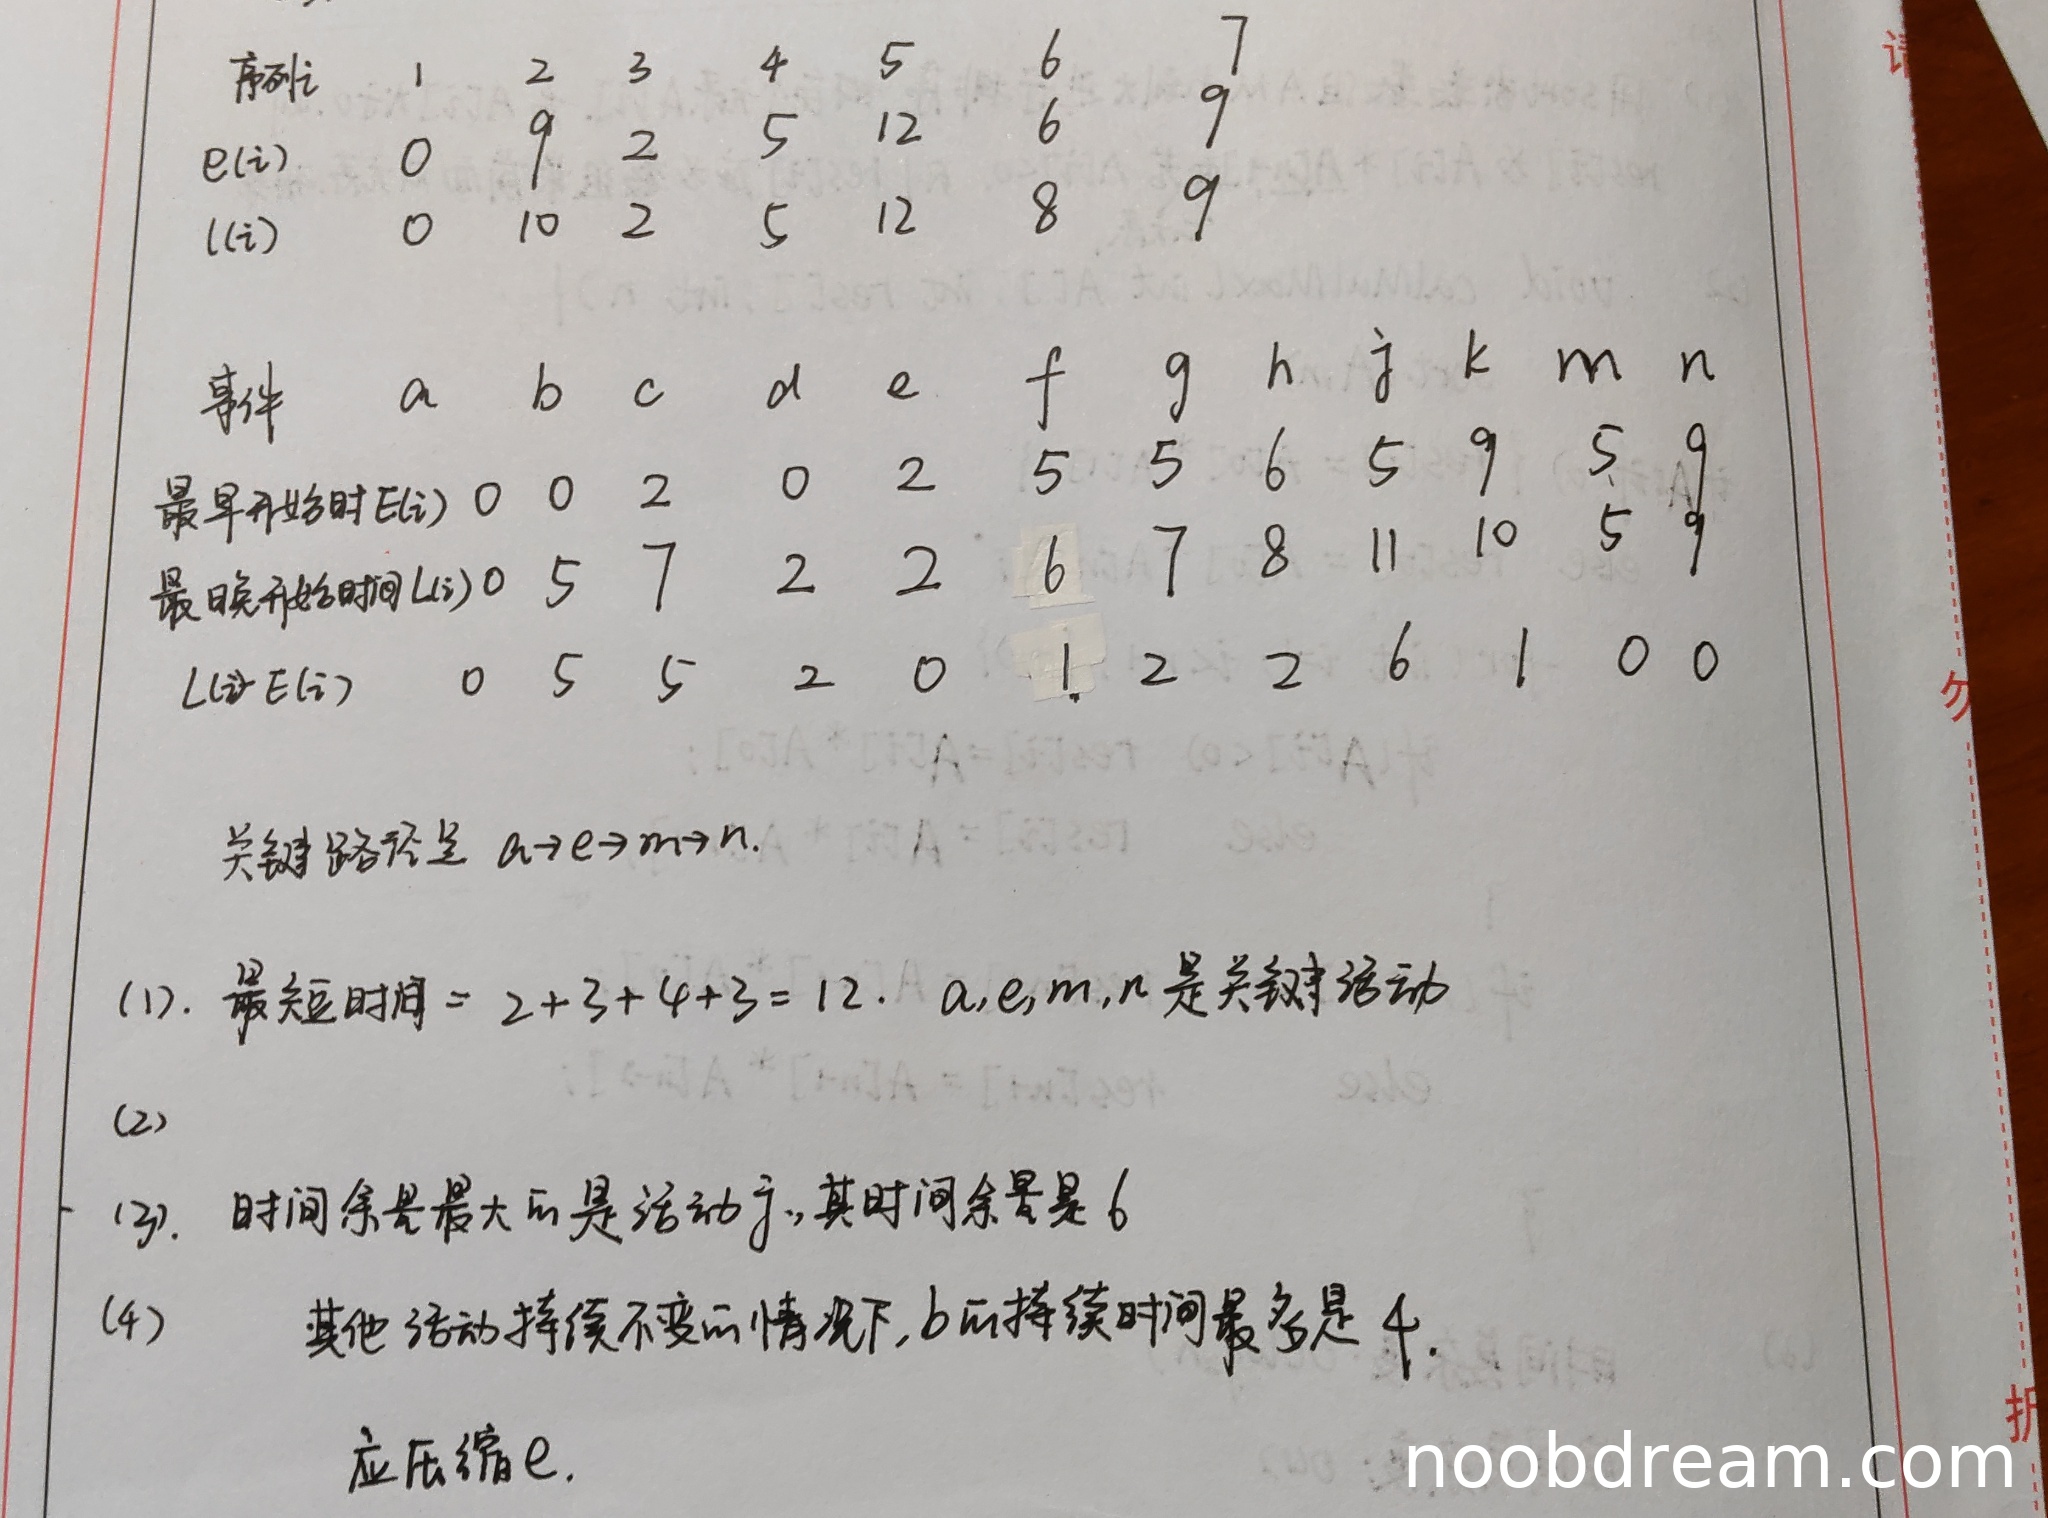 序列i 1 2 3 4 5 6 7
e(i) 0 9 2 5 12 6 9
l(i) 0 10 2 5 12 8 9
事件 a b c d e f g h j k m n
最早开始时E(i) 0 0 2 0 2 5 5 6 5 9 5 9
最晚开始时间L(i) 0 5 7 2 2 6 7 8 11 10 5 9
L(i)-E(i) 0 5 5 2 0 1 2 2 6 1 0 0
关键路径是 a→e→m→n.
(1). 最短时间 = 2+3+4+3=12. a,e,m,n是关键活动
(2)
(3). 时间余量最大的是活动j,其时间余量是6
(4) 其他活动持续不变的情况下,b的持续时间最多是4.
应压缩e.
请
勿
折
noobdream.com